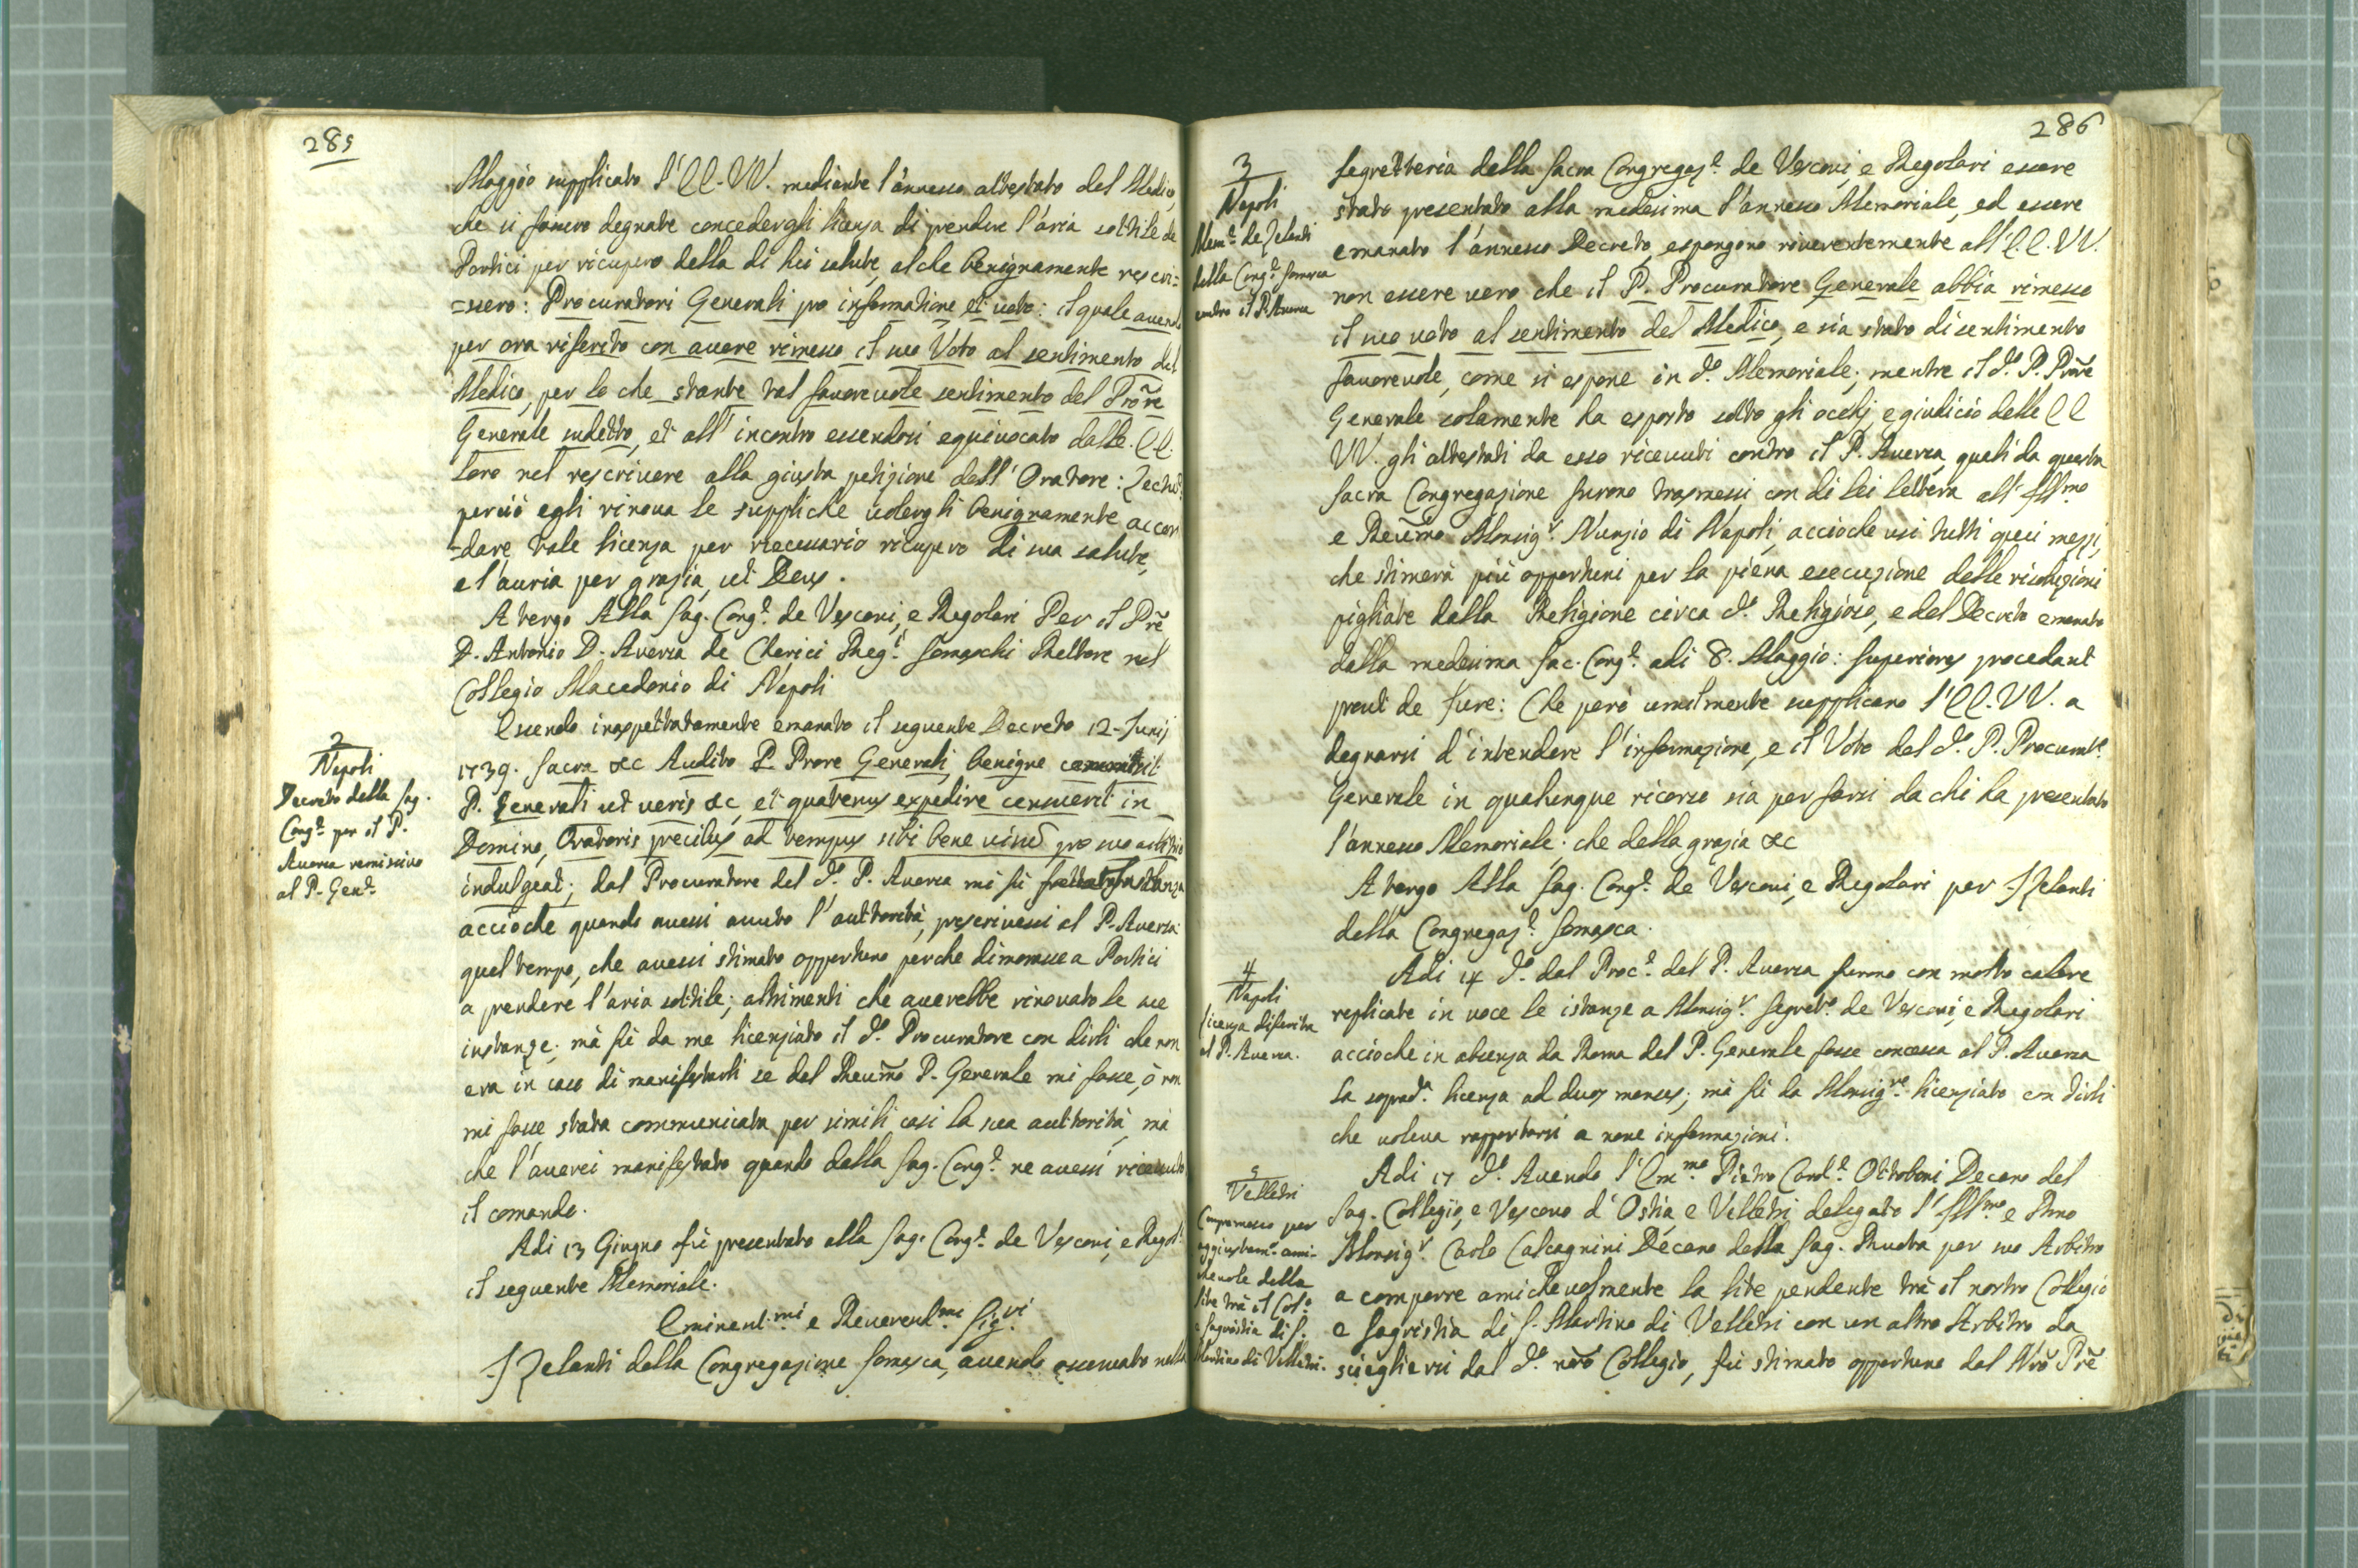 285
Maggio supplicato l'EE. VV. mediante l'annesso attestato del Medico,
che si fossero degnate concedergli licenza di prendere l'aria sottile de
Portici per ricupero della di lui salute, al che benignamente rescri=
=ssero: Procuratori Generali pro informatione, et voto: il quale avendo
per ora riferito con avere rimesso il suo Voto al sentimento del
Medico, per lo che stante tal favorevole sentimento del Prore
Generale sudetto, et all'incontro essendosi equivocato dalle. EE.
loro nel rescrivere alla giusta petizione dell'Oratore: Lectu:
perciò egli rinova le suppliche volergli benignamente accor
=dare tale licenza per necessario ricupero di sua salute,
e l'auria per grazia, ut Deus.
A tergo Alla Sag. Cong.e de Vescovi, e Regolari Per il Pre
D. Antonio D. Aversa de Cherici Reg.i Somaschi Rettore nel
Collegio Macedonio di Napoli
2
Napoli
Decreto della Sag.
Cong.e per il P.
Aversa remissivo
al P. Gen.e
Essendo inaspettatamente emanato il seguente Decreto 12. Junij
1739. Sacra &c Audito P. Prore Generali, benigne commisit
P. Generali ut veris &c, et quatenus expedire censuerit in
Domino, Oratoris precibus ad tempus sibi bene visum pro suo arbitrio
indulgeat; dal Procuratore del d.o P. Aversa mi fù fatta istanza
accioche quando avessi avuto l'auttorità, prescrivessi al P. Aversa
quel tempo, che avessi stimato opportuno perche dimorasse a Portici
a prendere l'aria sottile; altrimenti che averebbe rinovato le sue
instanze; mà fù da me licenziato il d.o Procuratore con dirli che non
era in caso di manifestarli se dal Reumo P. Generale mi fosse, ò non
mi fosse stata communicata per simili casi la sua auttorità, mà
che l'averei manifestato quando dalla Sag. Cong.e ne avessi ricevuto
il comando.
Adi 13 Giugno fù presentato alla Sag. Cong.e de Vescovi, e Regol.i
il seguente Memoriale.
Eminent.mi e Reverend.mi Sig.ri
I Zelanti della Congregazione Somasca, avendo osservato nella
286
3
Napoli
Mem.e de Zelanti
della Cong.e Somasca
contro il P. Aversa
Segretteria della Sacra Congregaz.e de Vescovi, e Regolari essere
stato presentato alla medesima l'annesso Memoriale, ed essere
emanato l'annesso Decreto, espongono riverentemente all'EE. VV.
non essere vero che il P. Procuratore Generale abbia rimesso
il suo voto al sentimento del Medico, e sia stato di sentimento
favorevole, come si espone in d.o Memoriale; mentre il d.o P. Prore
Generale solamente ha esposto sotto gli occhj, e giudicio delle EE
VV. gli attestati da esso ricevuti contro il P. Aversa, quali da questa
Sacra Congregazione furono trasmessi con di lei lettera all'Ill.mo
e Reumo Monsig.r Nunzio di Napoli, accioche usi tutti quei mezzi,
che stimerà più opportuni per la piena esecuzione delle risoluzioni
pigliate dalla Religione circa d.o Religioso, e del Decreto emanato
dalla medesima Sac. Cong.e adi 8. Maggio: Superiores procedant
prout de Jure: Che però umilmente supplicano l'EE. VV. a
degnarsi d'intendere l'informazione, e il Voto del d.o P. Procurat.e
Generale in qualunque ricorso sia per farsi da chi ha presentato
l'annesso Memoriale; che della grazia &c
A tergo Alla Sag. Cong.e de Vescovi, e Regolari per I Zelanti
della Congregaz.e Somasca.
4
Napoli
Licenza differita
al P. Aversa.
Adi 14 d.o dal Proc.e del P. Aversa furono con molto calore
replicate in voce le istanze a Monsig.r Segret.o de Vescovi, e Regolari
accioche in absenza da Roma del P. Generale fosse concessa al P. Aversa
la soprad.a licenza ad duos menses; mà fù da Monsig.re licenziato con dirli
che voleva rapportarsi a nove informazioni.
5
Velletri
Compromesso per
aggiustam.o ami-
chevole della
lite trà il Col.o
e Sagristia di S.
Martino di Velletri.
Adi 17 d.o Avendo l'Em.mo Pietro Card.e Ottoboni Decano del
Sag. Collegio, e Vescovo d'Ostia, e Velletri delegato l'Ill.mo e Rmo
Monsig.r Carlo Calcagnini Decano della Sag. Ruota per suo Arbitro
a comporre amichevolmente la lite pendente trà il nostro Collegio
e Sagristia di S. Martino di Velletri con un altro Arbitro da
sciegliersi dal d.o nro Collegio, fù stimato opportuno dal Nro Pre